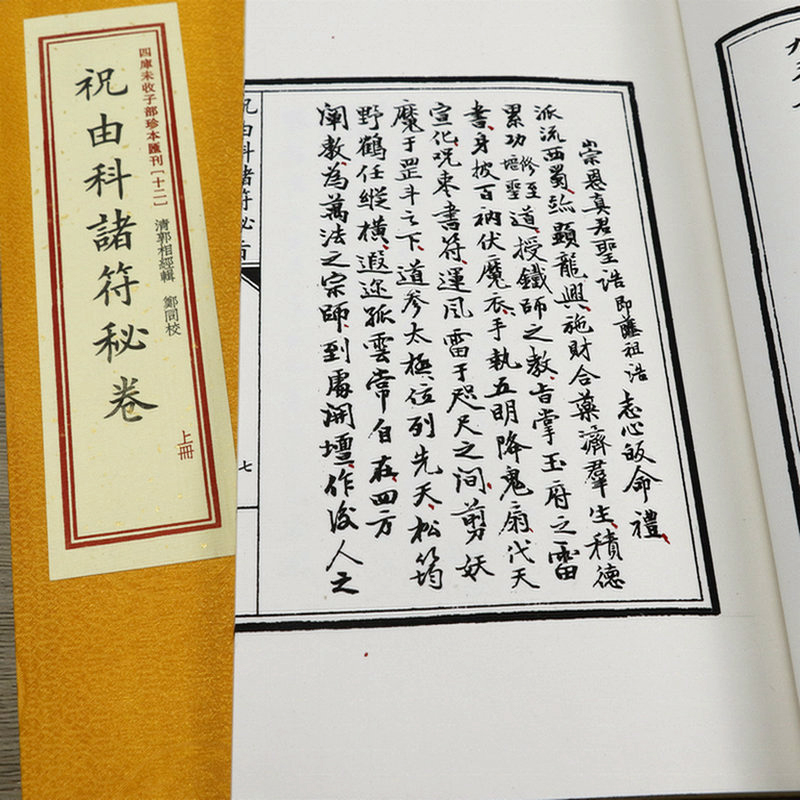 四庫未收子部珍本匯刊［十二］
祝由科諸符秘卷
清郭相經輯 鄭同校
上冊
崇恩真君聖誥即薩祖誥 志心皈命禮
派流西蜀跡顯龍興施財合藥濟羣生積德
累功修至壇聖道授鐵師之教旨掌玉府之雷
書身披百衲伏魔衣手執五明降鬼扇代天
宣化咒枣書符運風雷于咫尺之间剪妖
魔于罡斗之下道参太極位列先天松筠
野鶴任縱橫遐迩孤雲常自在四方
阐教為萬法之宗師到處開壇作後人之
祝由科諸符秘
七